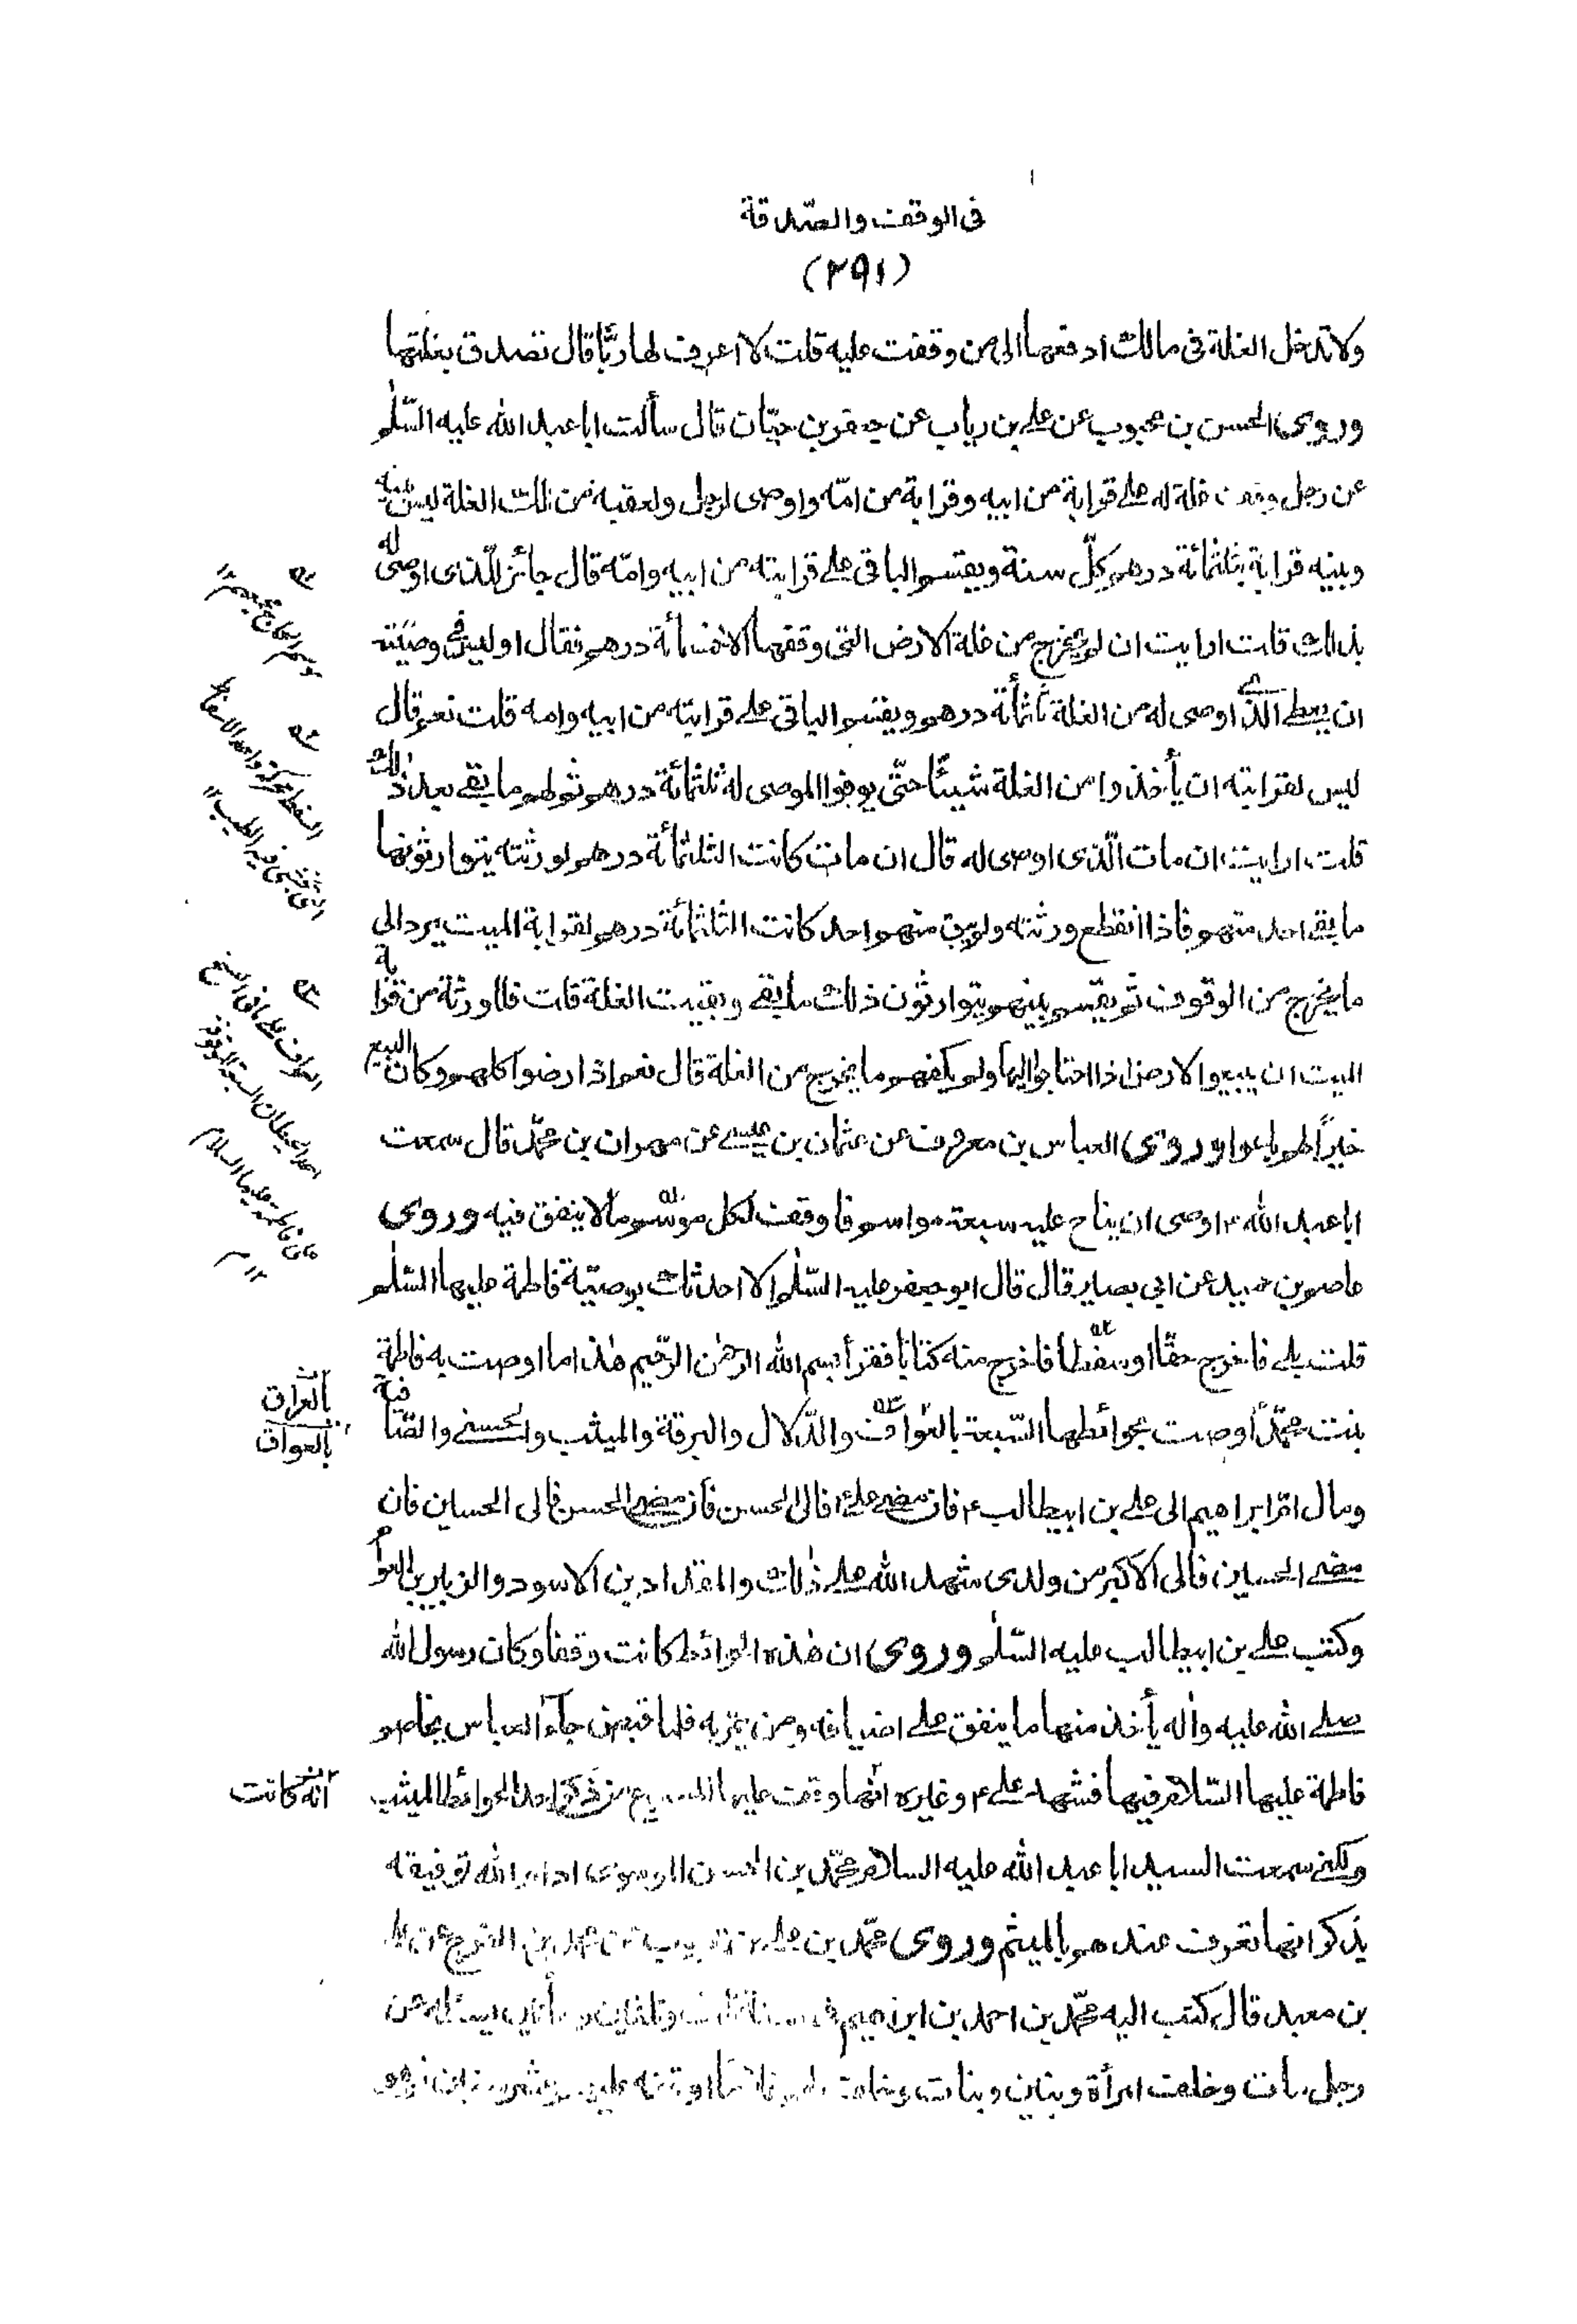 فى الوقف والصّدقة
(٢٩١)
ولا تدخل الغلة فى مالك ادفعها الى من وقفت عليه قلت لا اعرف لها ربّا قال تصدق بغلتها
وروى الحسن بن محبوب عن على بن رياب عن جعفر بن حيّان قال سألت ابا عبد الله عليه السّلم
عن رجل وقف غلة له على قرابة من ابيه وقرابة من امّه واوصى لرجل ولعقبه من تلك الغلة ليس بينه
وبينه قرابة بثلثمائة درهم كلّ سنة ويقسم الباقى على قرابته من ابيه وامّه قال جائز للّذى اوصى له
بذلك قلت ارايت ان لم يخرج من غلة الارض التى وقفها الا خمسمأة درهم فقال اوليس فى وصيّته
ان يعطى الّذى اوصى له من الغلة ثلثمأة درهم ويقسم الباقى على قرابته من ابيه وامه قلت نعم قال
ليس لقرابته ان يأخذوا من الغلة شيئًا حتّى يوفوا الموصى له ثلثمائة درهم ثم لهم ما يبقى بعد ذلك
قلت ارايت ان مات الّذى اوصى له قال ان مات كانت الثلثمأة درهم لورثته يتوارثونها
ما بقى احد منهم فاذا انقطع ورثته ولم يبق منهم احد كانت الثلثمأة درهم لقرابة الميت يرد الى
ما يخرج من الوقوف ثم يقسم بينهم يتوارثون ذلك ما بقى وبقيت الغلة قلت فللورثة من قرابة
الميت ان يبيعوا الارض اذا احتاجوا اليها ولم يكفهم ما يخرج من الغلة قال نعم اذا رضوا كلهم وكان البيع
خيرًا لهم باعوا وروى العباس بن معروف عن عثمان بن عيسى عن مهران بن محمّد قال سمعت
ابا عبد الله ع اوصى ان يناح عليه سبعة مواسم فاوقف لكل موسم مالا ينفق فيه وروى
عاصم بن حميد عن ابى بصير قال قال ابو جعفر عليه السّلم الا احدثك بوصيّة فاطمة عليها السّلم
قلت بلى فاخرج حقّا او سفطا فاخرج منه كتابا فقرأ بسم الله الرحمن الرّحيم هذا ما اوصت به فاطمة
بنت محمّد اوصت بحوائطها السّبعة بالعواف والدّلال والبرقة والميثب والحسنى والصّافية
ومال امّ ابراهيم الى على بن ابيطالب ع فان مضى على ع فالى الحسن فان مضى الحسن فالى الحسين فان
مضى الحسين فالى الاكبر من ولدى شهد الله على ذلك والمقداد بن الاسود والزبير بن العوام
وكتب على بن ابيطالب عليه السّلم وروى ان هذه الحوائط كانت وقفا وكان رسول الله
صلى الله عليه واله يأخذ منها ما ينفق على اضيافه ومن يمرّ به فلما قبض جاء العباس يخاصم
فاطمة عليها السّلام فيها فشهد على ع وغيره انّها وقف عليها المسموع من ذكر احد الحوائط الميثب
ولكنى سمعت السيد ابا عبد الله عليه السلام محمّد بن الحسن الموسوى ادام الله توفيقه
يذكر انها تعرف عندهم بالميثم وروى محمّد بن على بن محبوب عن محمد بن الفرج عن على
بن معبد قال كتب اليه محمّد بن احمد بن ابراهيم فى سنة ثلث وثلثين ومأتين يسئله عن
رجل مات وخلف امرأة وبنين وبنات وخلف لهم غلاما اوقفه عليهم عشر سنين ثم هو
بالعراق
بالعواق
انّه كانت